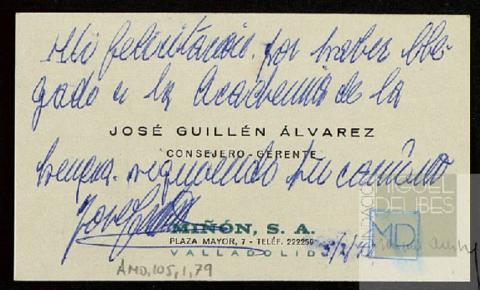 Mi felicitación, por haber lle-
gado a la Academia de la
JOSÉ GUILLÉN ÁLVAREZ
CONSEJERO-GERENTE
Lengua. siguiendo su camino
José
MIÑÓN, S. A.
PLAZA MAYOR, 7 - TELÉF. 222259
VALLADOLID
FUNDACIÓN
MIGUEL
DELIBES
MD
AMD,105,1,79